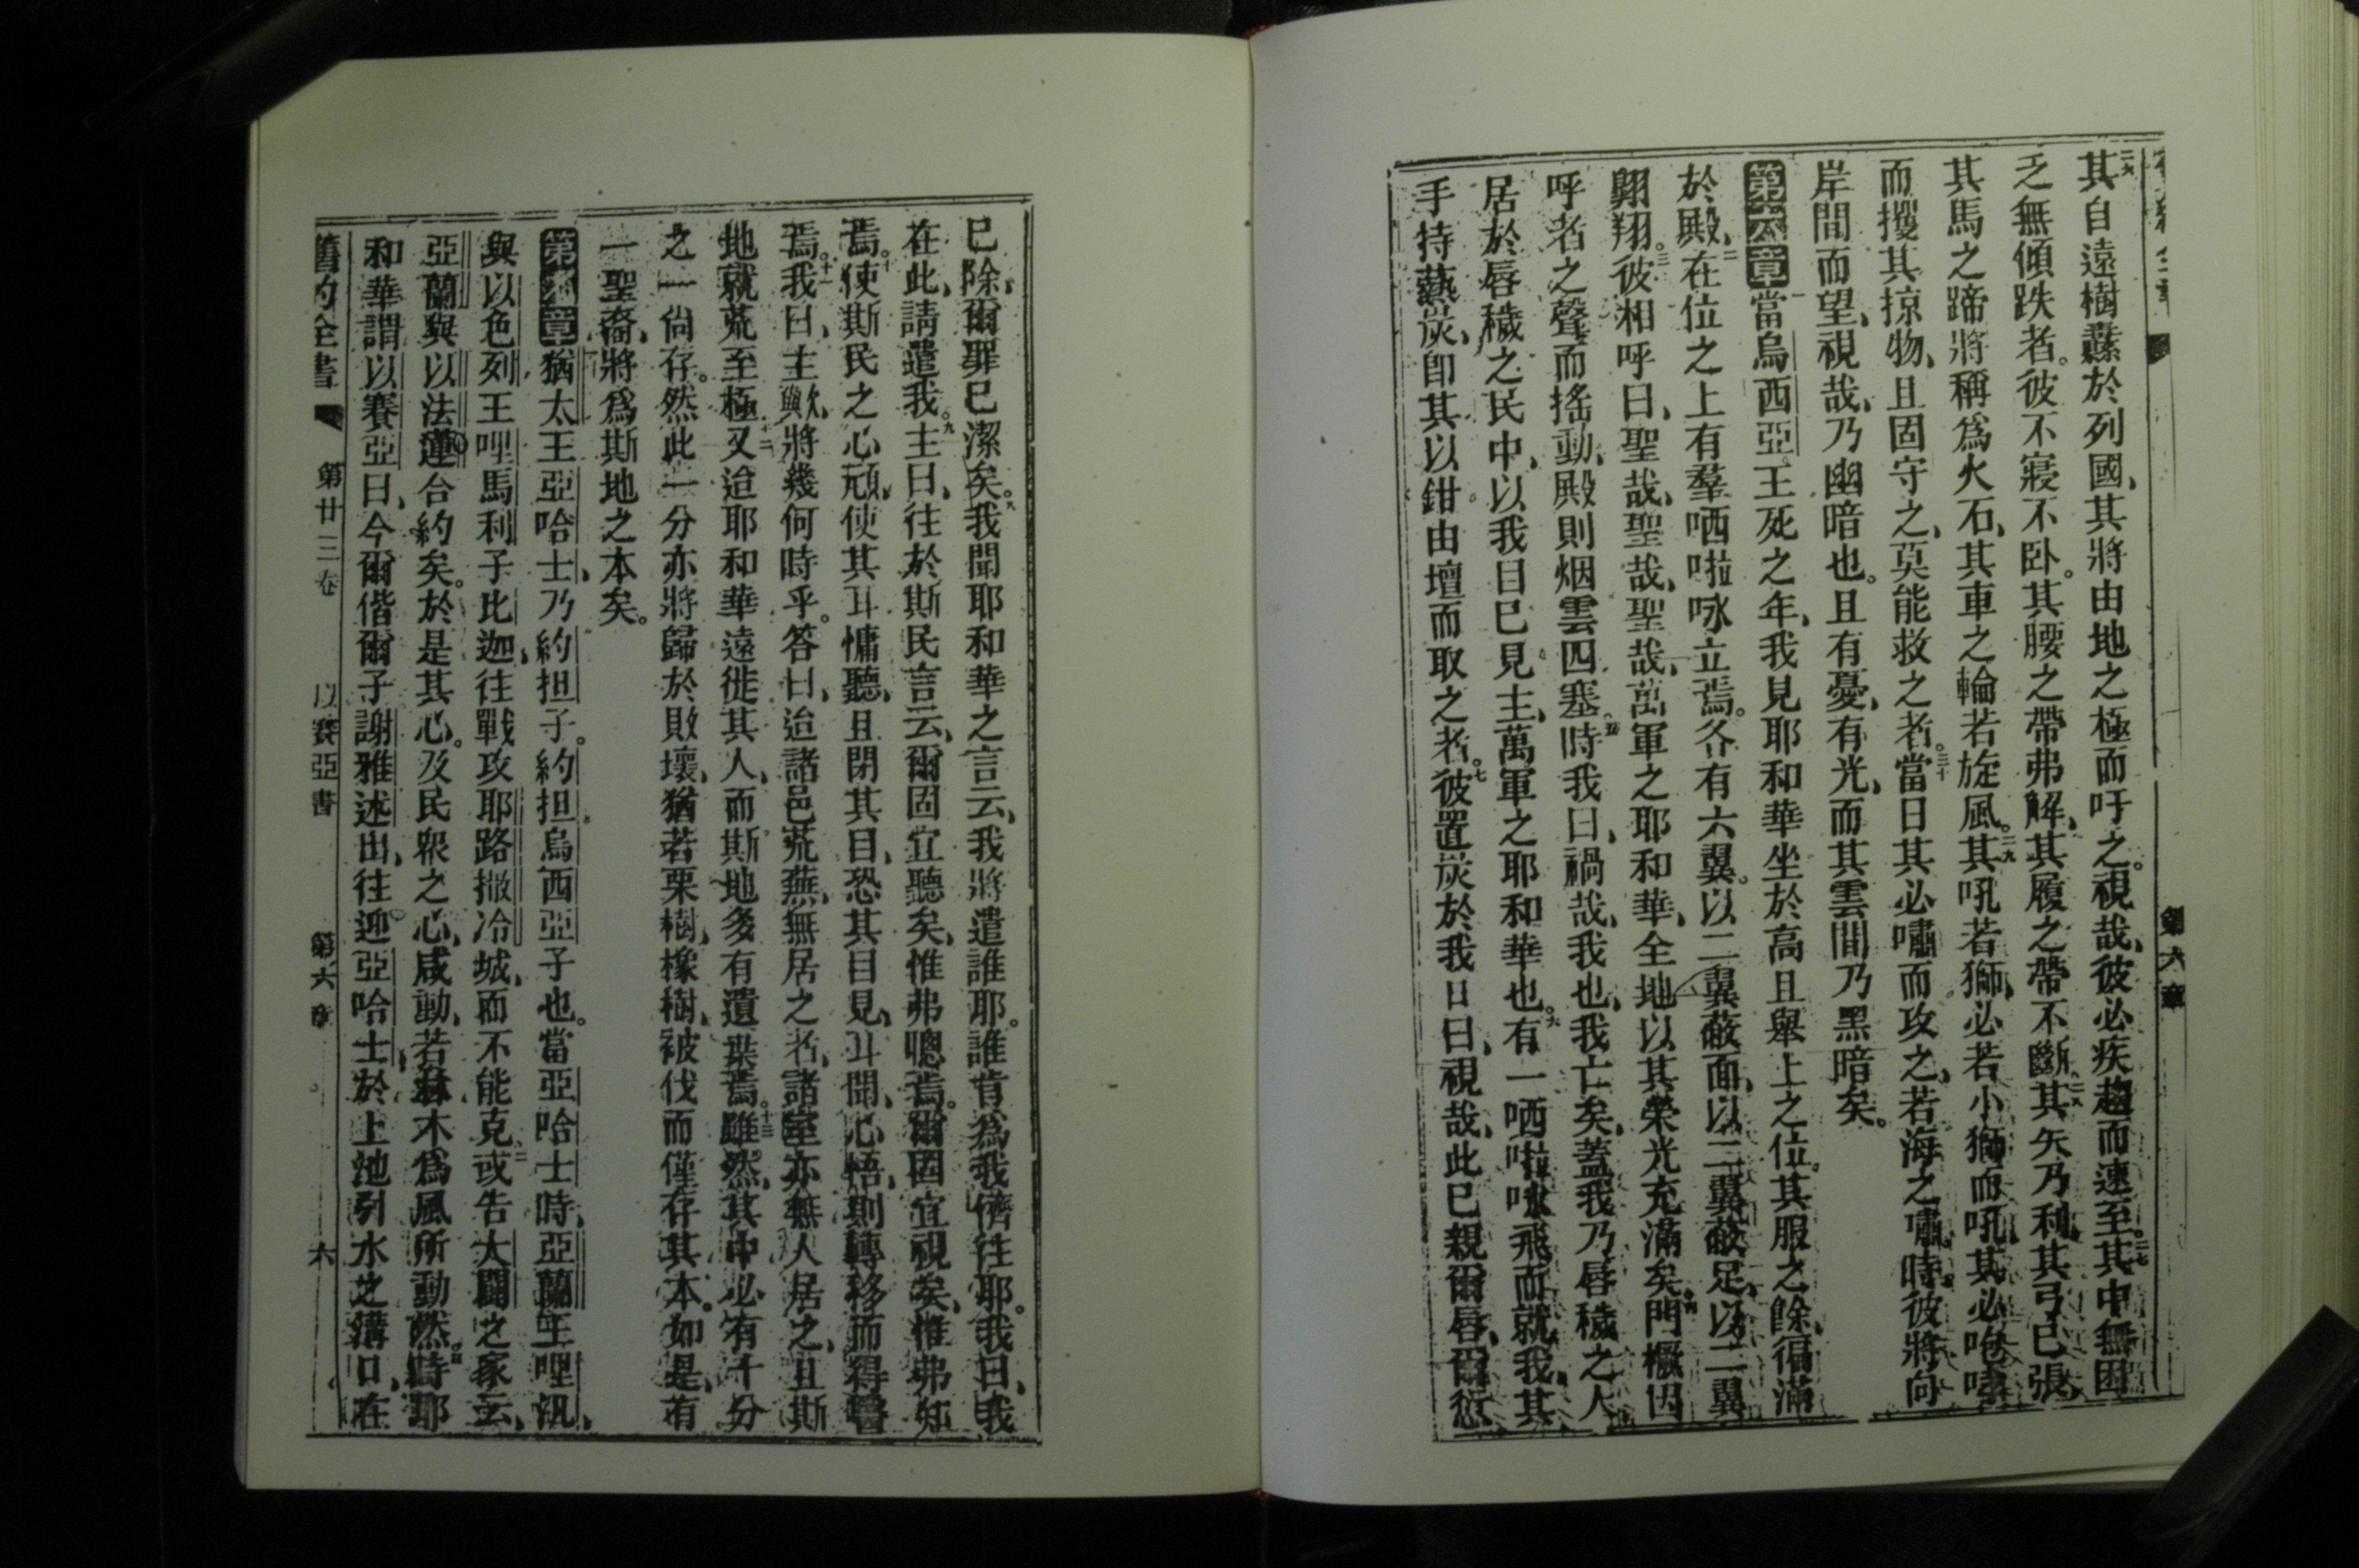 其自遠樹纛於列國、其將由地之極而吁之。視哉、彼必疾趨而速至。二七其中無困
乏無傾跌者。彼不寢不卧。其腰之帶弗解、其履之帶不斷。二八其矢乃利、其弓已張、
其馬之蹄將稱為火石、其車之輪若旋風。二九其吼若獅、必若小獅而吼、其必咆哮
而攫其掠物、且固守之、莫能救之者。三十當日其必嘯而攻之、若海之嘯。時彼將向
岸間而望、視哉、乃幽暗也。且有憂、有光、而其雲間乃黑暗矣。
第六章當烏西亞王死之年、我見耶和華坐於高且舉上之位。其服之餘、徧滿
於殿、二在位之上有羣哂啦咏立焉。各有六翼。以二翼蔽面、以二翼蔽足、以二翼
翺翔。三彼相呼曰、聖哉、聖哉、聖哉、萬軍之耶和華、全地以其榮光充滿矣。四門橛因
呼者之聲而搖動、殿則烟雲四塞。五時我曰、禍哉、我也、我亡矣、蓋我乃唇穢之人
居於唇穢之民中、以我目已見主、萬軍之耶和華也。六有一哂啦咏飛而就我、其
手持爇炭、卽其以鉗由壇而取之者。七彼置炭於我口曰、視哉、此已親爾唇、爾愆
第六章
已除、爾罪已潔矣。八我聞耶和華之言云、我將遣誰耶。誰肯為我儕往耶。我曰、我
在此、請遣我。九主曰、往於斯民言云、爾固宜聽矣、惟弗聰焉。爾固宜視矣、惟弗知
焉。十使斯民之心頑、使其耳慵聽、且閉其目、恐其目見、耳聞、心悟、則轉移而得醫
焉。十一我曰、主歟、將幾何時乎。答曰、迨諸邑荒蕪、無居之者、諸室亦無人居之、且斯
地就荒至極、十二又迨耶和華遠徙其人、而斯地多有遺棄焉。十三雖然、其中必有十分
之一尙存。然此一分亦將歸於敗壞、猶若栗樹、橡樹、被伐而僅存其本。如是、有
一聖裔、將為斯地之本矣。
第七章猶太王亞哈士、乃約担子。約担、烏西亞子也。當亞哈士時、亞蘭王哩汛、
與以色列王哩馬利子比迦、往戰攻耶路撒冷城、而不能克。二或告大闢之家云、
亞蘭與以法蓮合約矣。於是其心、及民衆之心、咸動、若林木為風所動然。三時耶
和華謂以賽亞曰、今爾偕爾子謝雅述出、往迎亞哈士、於上池引水之溝口、在
舊約全書 第廿三卷 以賽亞書 第六章 六